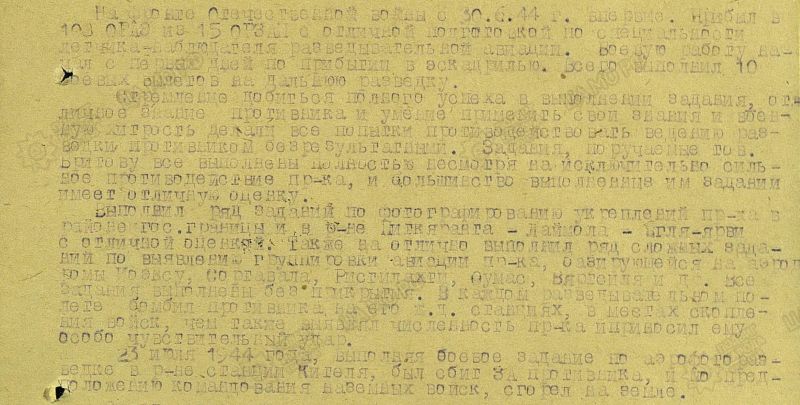 На фронте Отечественной войны с 30.6.44 г. впервые. Прибыл в
103 ОРАЭ из 15 ОРЗАП с отличной подготовкой по специальности
летчика-наблюдателя разведывательной авиации. Боевую работу на-
чал с первых дней по прибытии в эскадрилью. Всего выполнил 10
боевых вылетов на дальнюю разведку.
Стремление добиться полного успеха в выполнении задания, от-
личное знание противника и умение применить свои знания и воен-
ную хитрость делали все попытки противодействовать ведению раз-
ведки противником безрезультатными. Задания, поручаемые тов.
Бритову все выполнены полностью несмотря на исключительно силь-
ное противодействие пр-ка, и большинство выполненных им заданий
имеет отличную оценку.
Выполнил ряд заданий по фотографированию укреплений пр-ка в
районе гос.границы и в р-не Питкяранта - Лаймола - ярви
с отличной оценкой. Также на отлично выполнил ряд сложных зада-
ний по выявлению группировки авиации пр-ка, базирующейся на аэрод-
ромы Иоэнсу, Сортавала, Ристилахти, Вяртсиля и др. Все
задания выполнены без прикрытия. В каждом разведывательном по-
лете бомбил противника на его ж.д. станциях, в местах скопле-
ния войск, чем также выявлял численность пр-ка и приносил ему
особо чувствительный удар.
23 июля 1944 года, выполняя боевое задание по аэрофотораз-
ведке в р-не станции Кителя, был сбит ЗА противника, и по пред-
положению командования наземных войск, сгорел на земле.